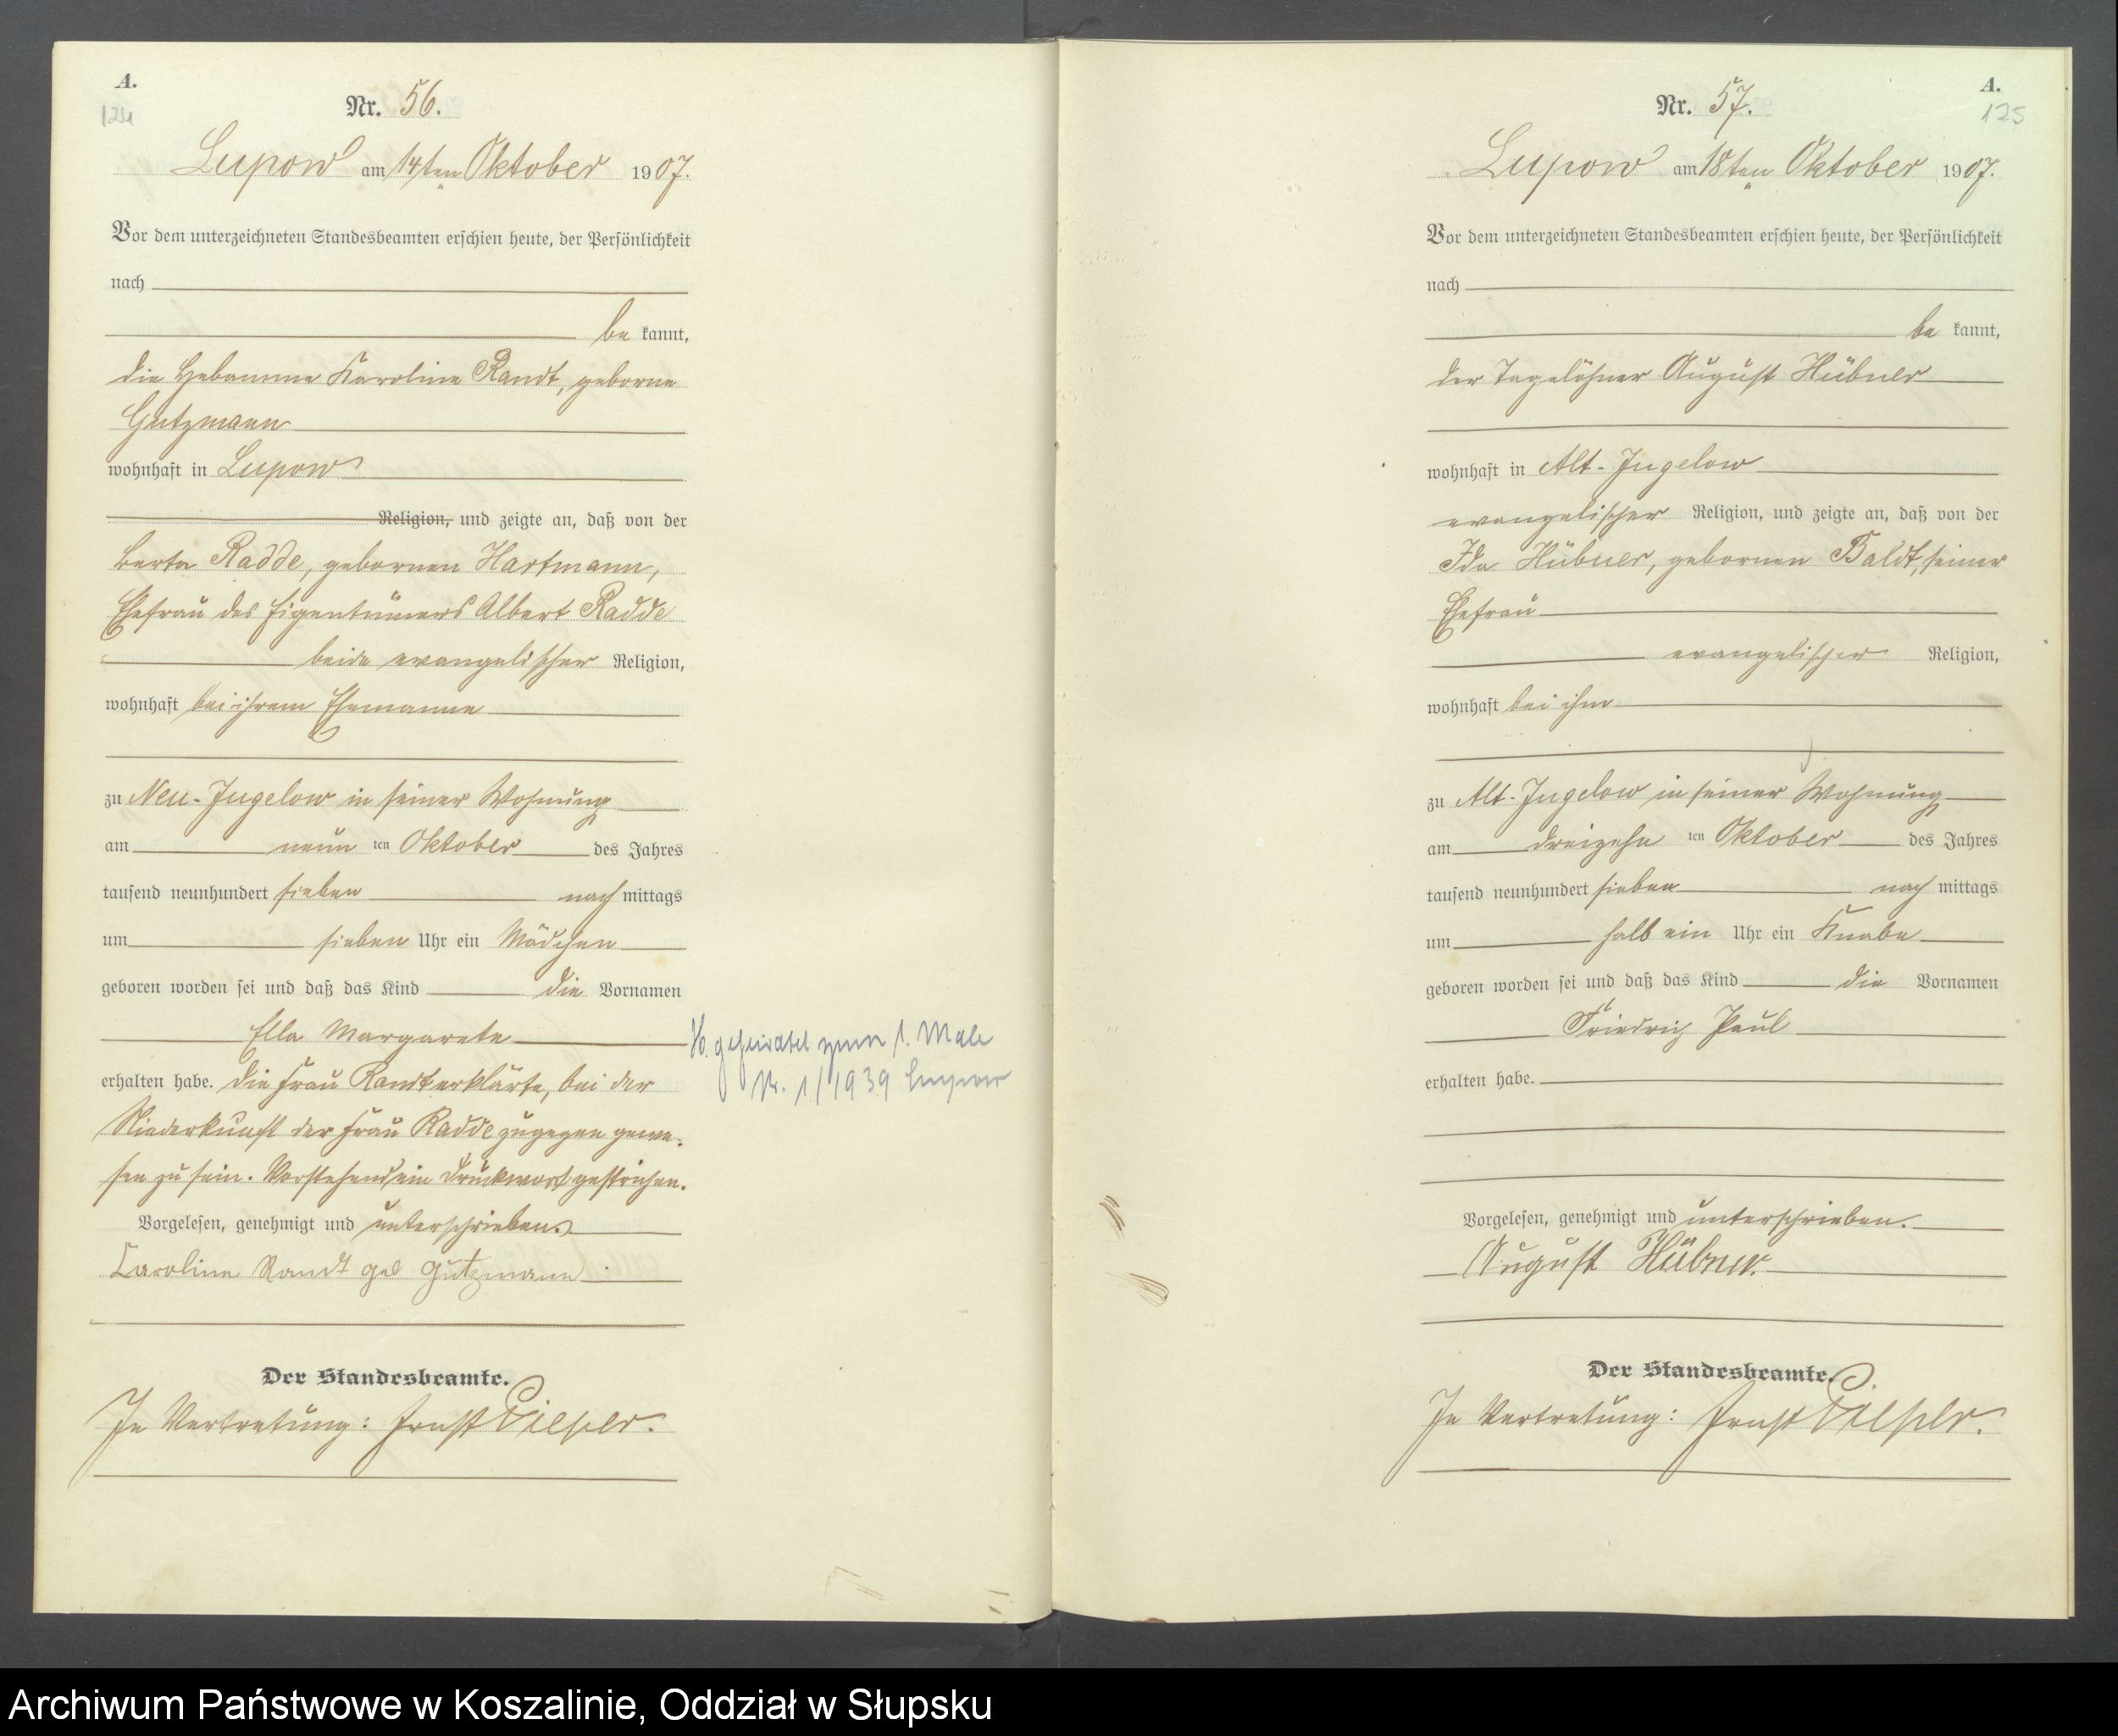 A.
124
Nr. 56.
Lupow am 14ten Oktober 1907.
Vor dem unterzeichneten Standesbeamten erschien heute, der Persönlichkeit
nach
be kannt,
die Hebamme Karoline Randt, geborne
Gutzmann
wohnhaft in Lupow
Religion, und zeigte an, daß von der
Berta Radde, gebornen Hartmann,
Ehefrau des Eigentümers Albert Radde
beide evangelischer Religion,
wohnhaft bei ihrem Ehemanne
zu Neu-Jugelow in seiner Wohnung
am neun ten Oktober des Jahres
tausend neunhundert sieben nach mittags
um sieben Uhr ein Mädchen
geboren worden sei und daß das Kind die Vornamen
Ella Margarete
erhalten habe. Die Frau Randt erklärte, bei der
Niederkunft der Frau Radde zugegen gewe-
sen zu sein. Vorstehend ein Druckwort gestrichen.
Vorgelesen, genehmigt und unterschrieben.
Caroline Randt geb Gutzmann
Der Standesbeamte.
In Vertretung: Ernst Pieper.
geheiratet zum 1. Male
Nr. 1/1939 Lupow
A.
125
Nr. 57.
Lupow am 18ten Oktober 1907.
Vor dem unterzeichneten Standesbeamten erschien heute, der Persönlichkeit
nach
be kannt,
der Tagelöhner August Hübner
wohnhaft in Alt-Jugelow
evangelischer Religion, und zeigte an, daß von der
Ida Hübner, gebornen Baldt, seiner
Ehefrau
evangelischer Religion,
wohnhaft bei ihm
zu Alt-Jugelow in seiner Wohnung
am dreizehn ten Oktober des Jahres
tausend neunhundert sieben nach mittags
um halb ein Uhr ein Knabe
geboren worden sei und daß das Kind die Vornamen
Friedrich Paul
erhalten habe.
Vorgelesen, genehmigt und unterschrieben.
August Hübner.
Der Standesbeamte.
In Vertretung: Ernst Pieper.
Archiwum Państwowe w Koszalinie, Oddział w Słupsku